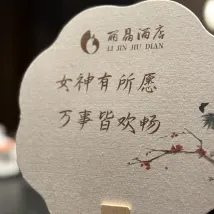 丽晶酒店
LI JIN JIU DIAN
女神有所愿
万事皆欢畅